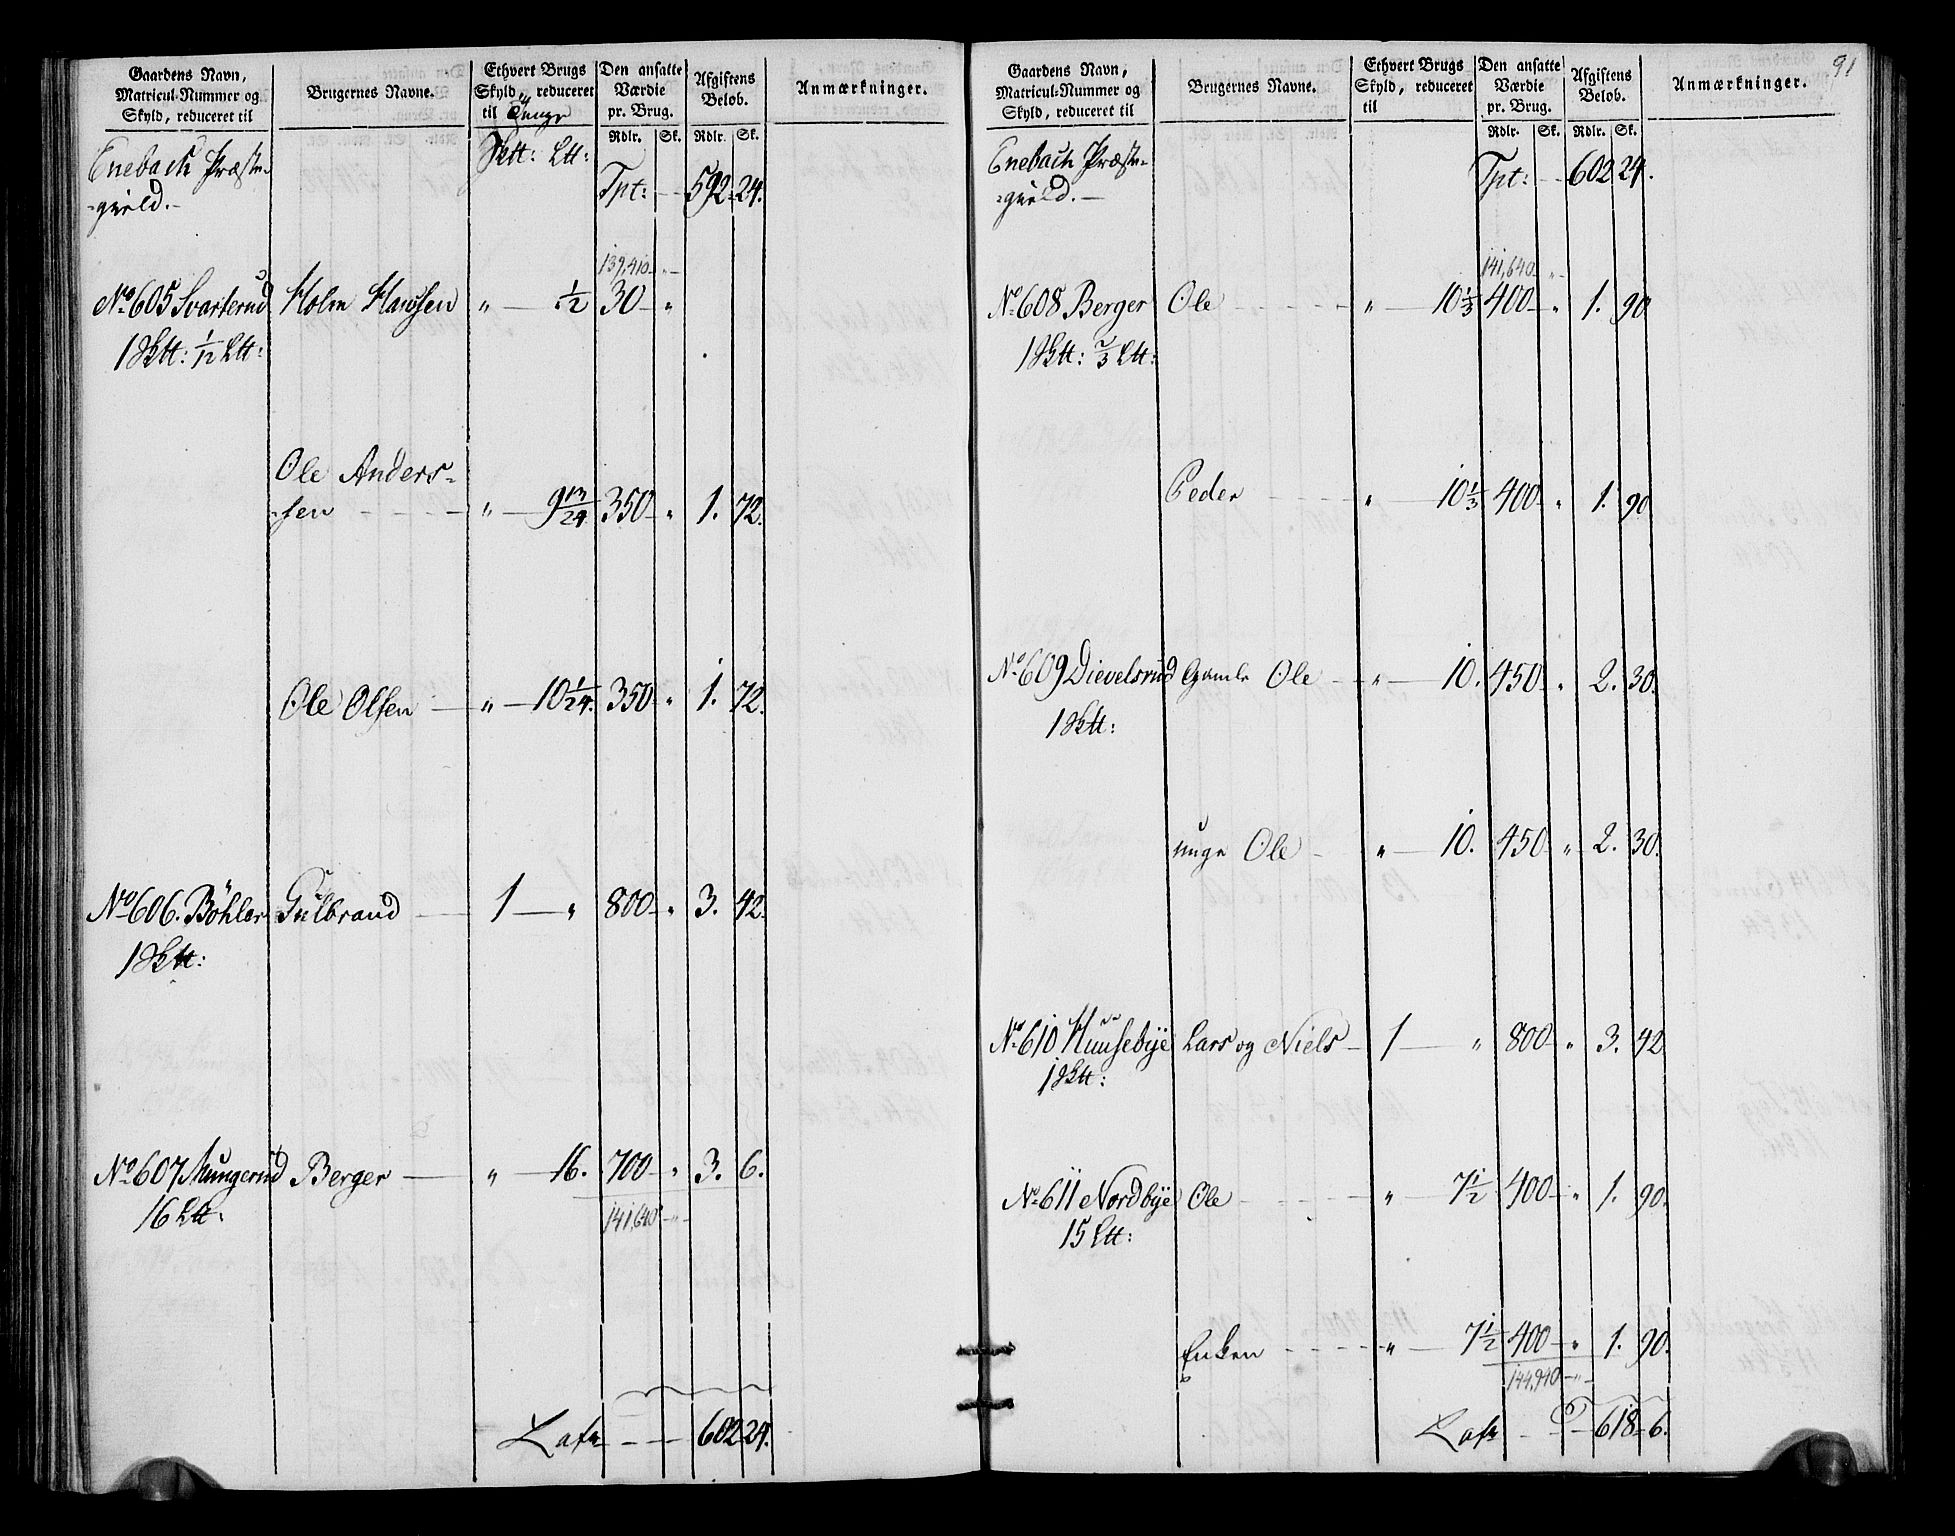 Gaardens Navn,
Matricul-Nummer og
Skyld, reduceret til
Brugernes Navne.
Ethvert Brugs
Skyld, reduceret
til Tunge
Den ansatte
Værdie
pr. Brug.
Afgiftens
Beløb.
Anmærkninger.
Rdlr. Sk. Rdlr. Sk.
Enebach Præste-
-gield.- Sktt: Ltt: Tpt: - - 592 - 24.
139,410 - " -
No 605 Svarterud Holm Hansen " - 1/2 30 - "
1 Sktt: 1/12 Ltt:
Ole Anders-
-sen - - - " - 9 13/24 350 - " 1. 72.
Ole Olsen - " - 10 1/24. 350 - " 1. 72.
No 606. Böhler Gulbrand - 1 - " 800 - " 3. 42.
1 Sktt:
No 607 Mungerud Berger - " - 16. 700 - " 3. 6.
16 Ltt: 141,640 - " -
Lats - - - 602 - 24.
91
Gaardens Navn,
Matricul-Nummer og
Skyld, reduceret til
Brugernes Navne.
Ethvert Brugs
Skyld, reduceret
til
Den ansatte
Værdie
pr. Brug.
Afgiftens
Beløb.
Anmærkninger.
Rdlr. Sk. Rdlr. Sk.
Enebach Præste-
-gield. - Tpt: - - 602 24.
141,640 - " -
No 608 Berger Ole - - - - " - 10 1/3 400 - " 1. 90.
1 Sktt: 2/3 Ltt:
Peder - - - - " - 10 1/3 400 - " 1. 90.
No 609 Dievelsrud Gamle Ole - " - 10. 450 - " 2. 30.
1 Sktt:
unge Ole - " - 10. 450 - " 2. 30.
No 610 Huusebye Lars og Niels - 1 - " 800 - " 3. 42
1 Sktt:
No 611 Nordbye Ole - - - - " - 7 1/2 400 - " 1. 90.
15 Ltt:
Enken - - - - " - 7 1/2 400 - " 1. 90.
144,940 - " -
Lats - - - 618 - 6.